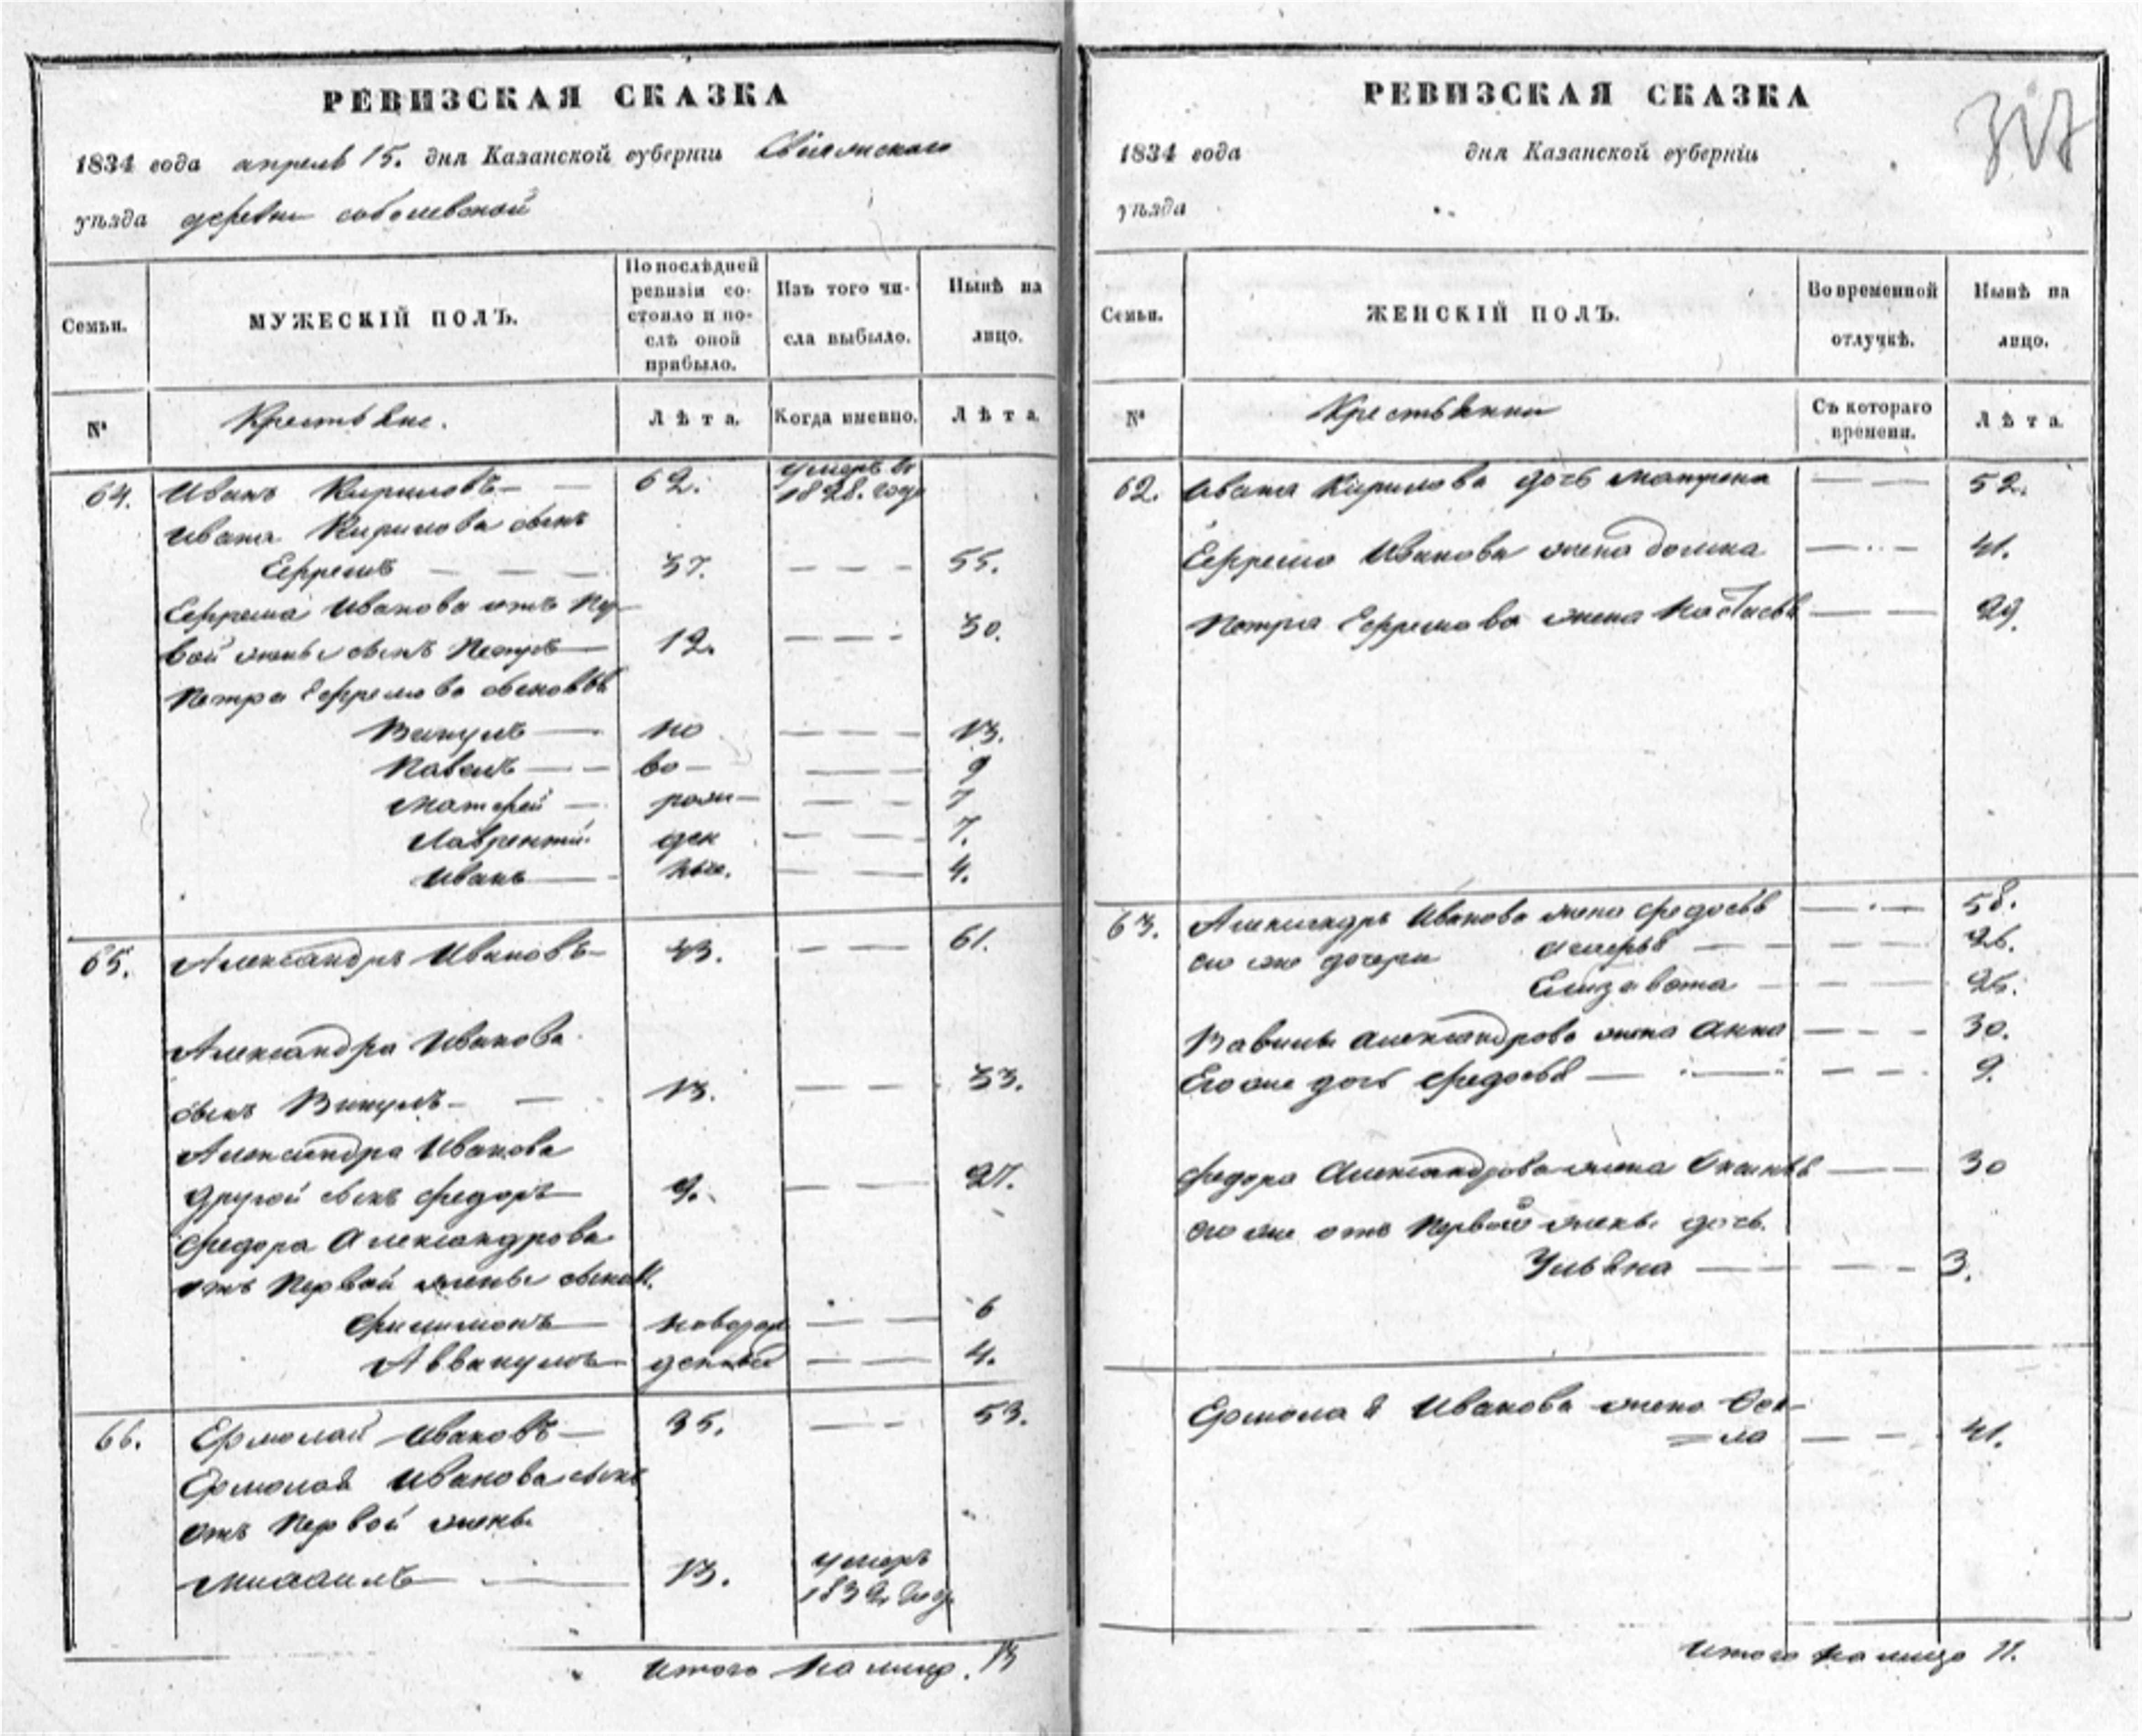 РЕВИЗСКАЯ СКАЗКА
1834 года апреля 15. дня Казанской губерніи Свіяжскаго
уѣзда деревни соболевской
Семьи.
МУЖЕСКІЙ ПОЛЪ.
По послѣдней ревизіи со-
стояло и по-
слѣ оной
прибыло.
Изъ того чи-
сла выбыло.
Нынѣ на
лицо.
№
Крестьяне.
Лѣта.
Когда именно.
Лѣта.
64. Иванъ Кириловъ — — 62. умеръ въ 1828. году
Ивана Кирилова сынъ
Ефремъ — — — 37. — — — 55.
Ефрема Иванова отъ пер-
вой жены сынъ Петръ — 12. — — — 30.
Петра Ефремова сыновья
Викулъ — но — — — 13.
Павелъ — — во — — — 9
Матфей — рож — — — 7
Лаврентій ден — — 7.
Иванъ — ные. — — 4.
65. Александръ Ивановъ — 43. — — — 61.
Александра Иванова
сынъ Викулъ — — 13. — — — 33.
Александра Иванова
другой сынъ Федоръ — 9. — — — 27.
Федора Александрова
отъ первой жены сыновья
Филимонъ — новорож — — 6
Аввакумъ — денный — — 4.
66. Ермолай Ивановъ — 35. — — 53.
Ермолая Иванова сынъ
отъ первой жены
Михаилъ — — 13. умеръ 1832 году
Итого на лицо. 13
РЕВИЗСКАЯ СКАЗКА
317
1834 года дня Казанской губерніи
уѣзда
Семьи.
ЖЕНСКІЙ ПОЛЪ.
Во временной
отлучкѣ.
Нынѣ на
лицо.
№
Крестьянки
Съ котораго
времени.
Лѣта.
62. Ивана Кирилова дочь Матрена — — 52.
Ефрема Иванова жена Домна — — — 41.
Петра Ефремова жена Настасья — — 29.
63. Александръ Иванова жена Федосья — — — 58.
его же дочери — — — 26.
Елизавета — — — 25.
Вавилы Александрова жена Анна — — — 30.
Его же дочь Федосья — — — — 9.
Федора Александрова жена — — 30
его же отъ первой жены дочь
Ульяна — — — 3.
Ермолая Иванова жена — — 41.
Итого на лицо 11.